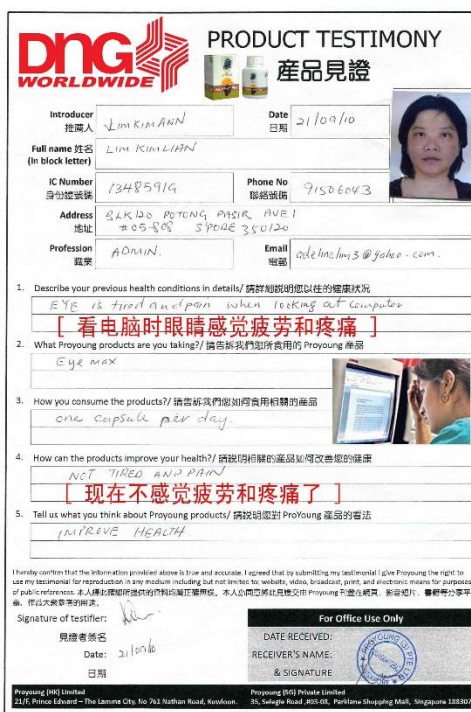 DNG
WORLDWIDE
PRODUCT TESTIMONY
産品見證
Introducer
推薦人
LIM KIM ANN
Date
日期
21/09/10
Full name 姓名
(In block letter)
LIM KIM LIAN
IC Number
身份證號碼
1348591G
Phone No
聯絡號碼
91506043
Address
地址
BLK120 POTONG PASIR AVE 1
#05-808 S'PORE 350120
Profession
職業
ADMIN.
Email
電郵
adelinelim3@yahoo.com.
1. Describe your previous health conditions in details/ 請詳細説明您以往的健康狀況
EYE is tired and pain when looking at computer
[ 看电脑时眼睛感觉疲劳和疼痛 ]
2. What Proyoung products are you taking?/ 請告訴我們您所食用的 Proyoung 産品
Eye max
3. How you consume the products?/ 請告訴我們您如何食用相關的産品
one capsule per day.
4. How can the products improve your health?/ 請説明相關的産品如何改善您的健康
NOT TIRED AND PAIN
[ 现在不感觉疲劳和疼痛了 ]
5. Tell us what you think about Proyoung products/ 請説明您對 ProYoung 産品的看法
IMPROVE HEALTH
I hereby confirm that the information provided above is true and accurate. I agreed that by submitting my testimonial I give Proyoung the right to
use my testimonial for reproduction in any medium including but not limited to: website, video, broadcast, print, and electronic means for purposes
of public references. 本人謹此確認所提供的資料均屬正確無誤。本人亦同意將此見證交由 Proyoung 刊登在網頁、影音短片、書籍等分享平
臺、作爲大衆參考的用途。
Signature of testifier:
見證者簽名
Date: 21/09/10
日期
For Office Use Only
DATE RECEIVED:
RECEIVER'S NAME:
& SIGNATURE
Proyoung (HK) Limited
21/F, Prince Edward – The Lamma City, No 761 Nathan Road, Kowloon.
Proyoung (SG) Private Limited
35, Selegie Road ,#03-08, Parklane Shopping Mall, Singapore 188307